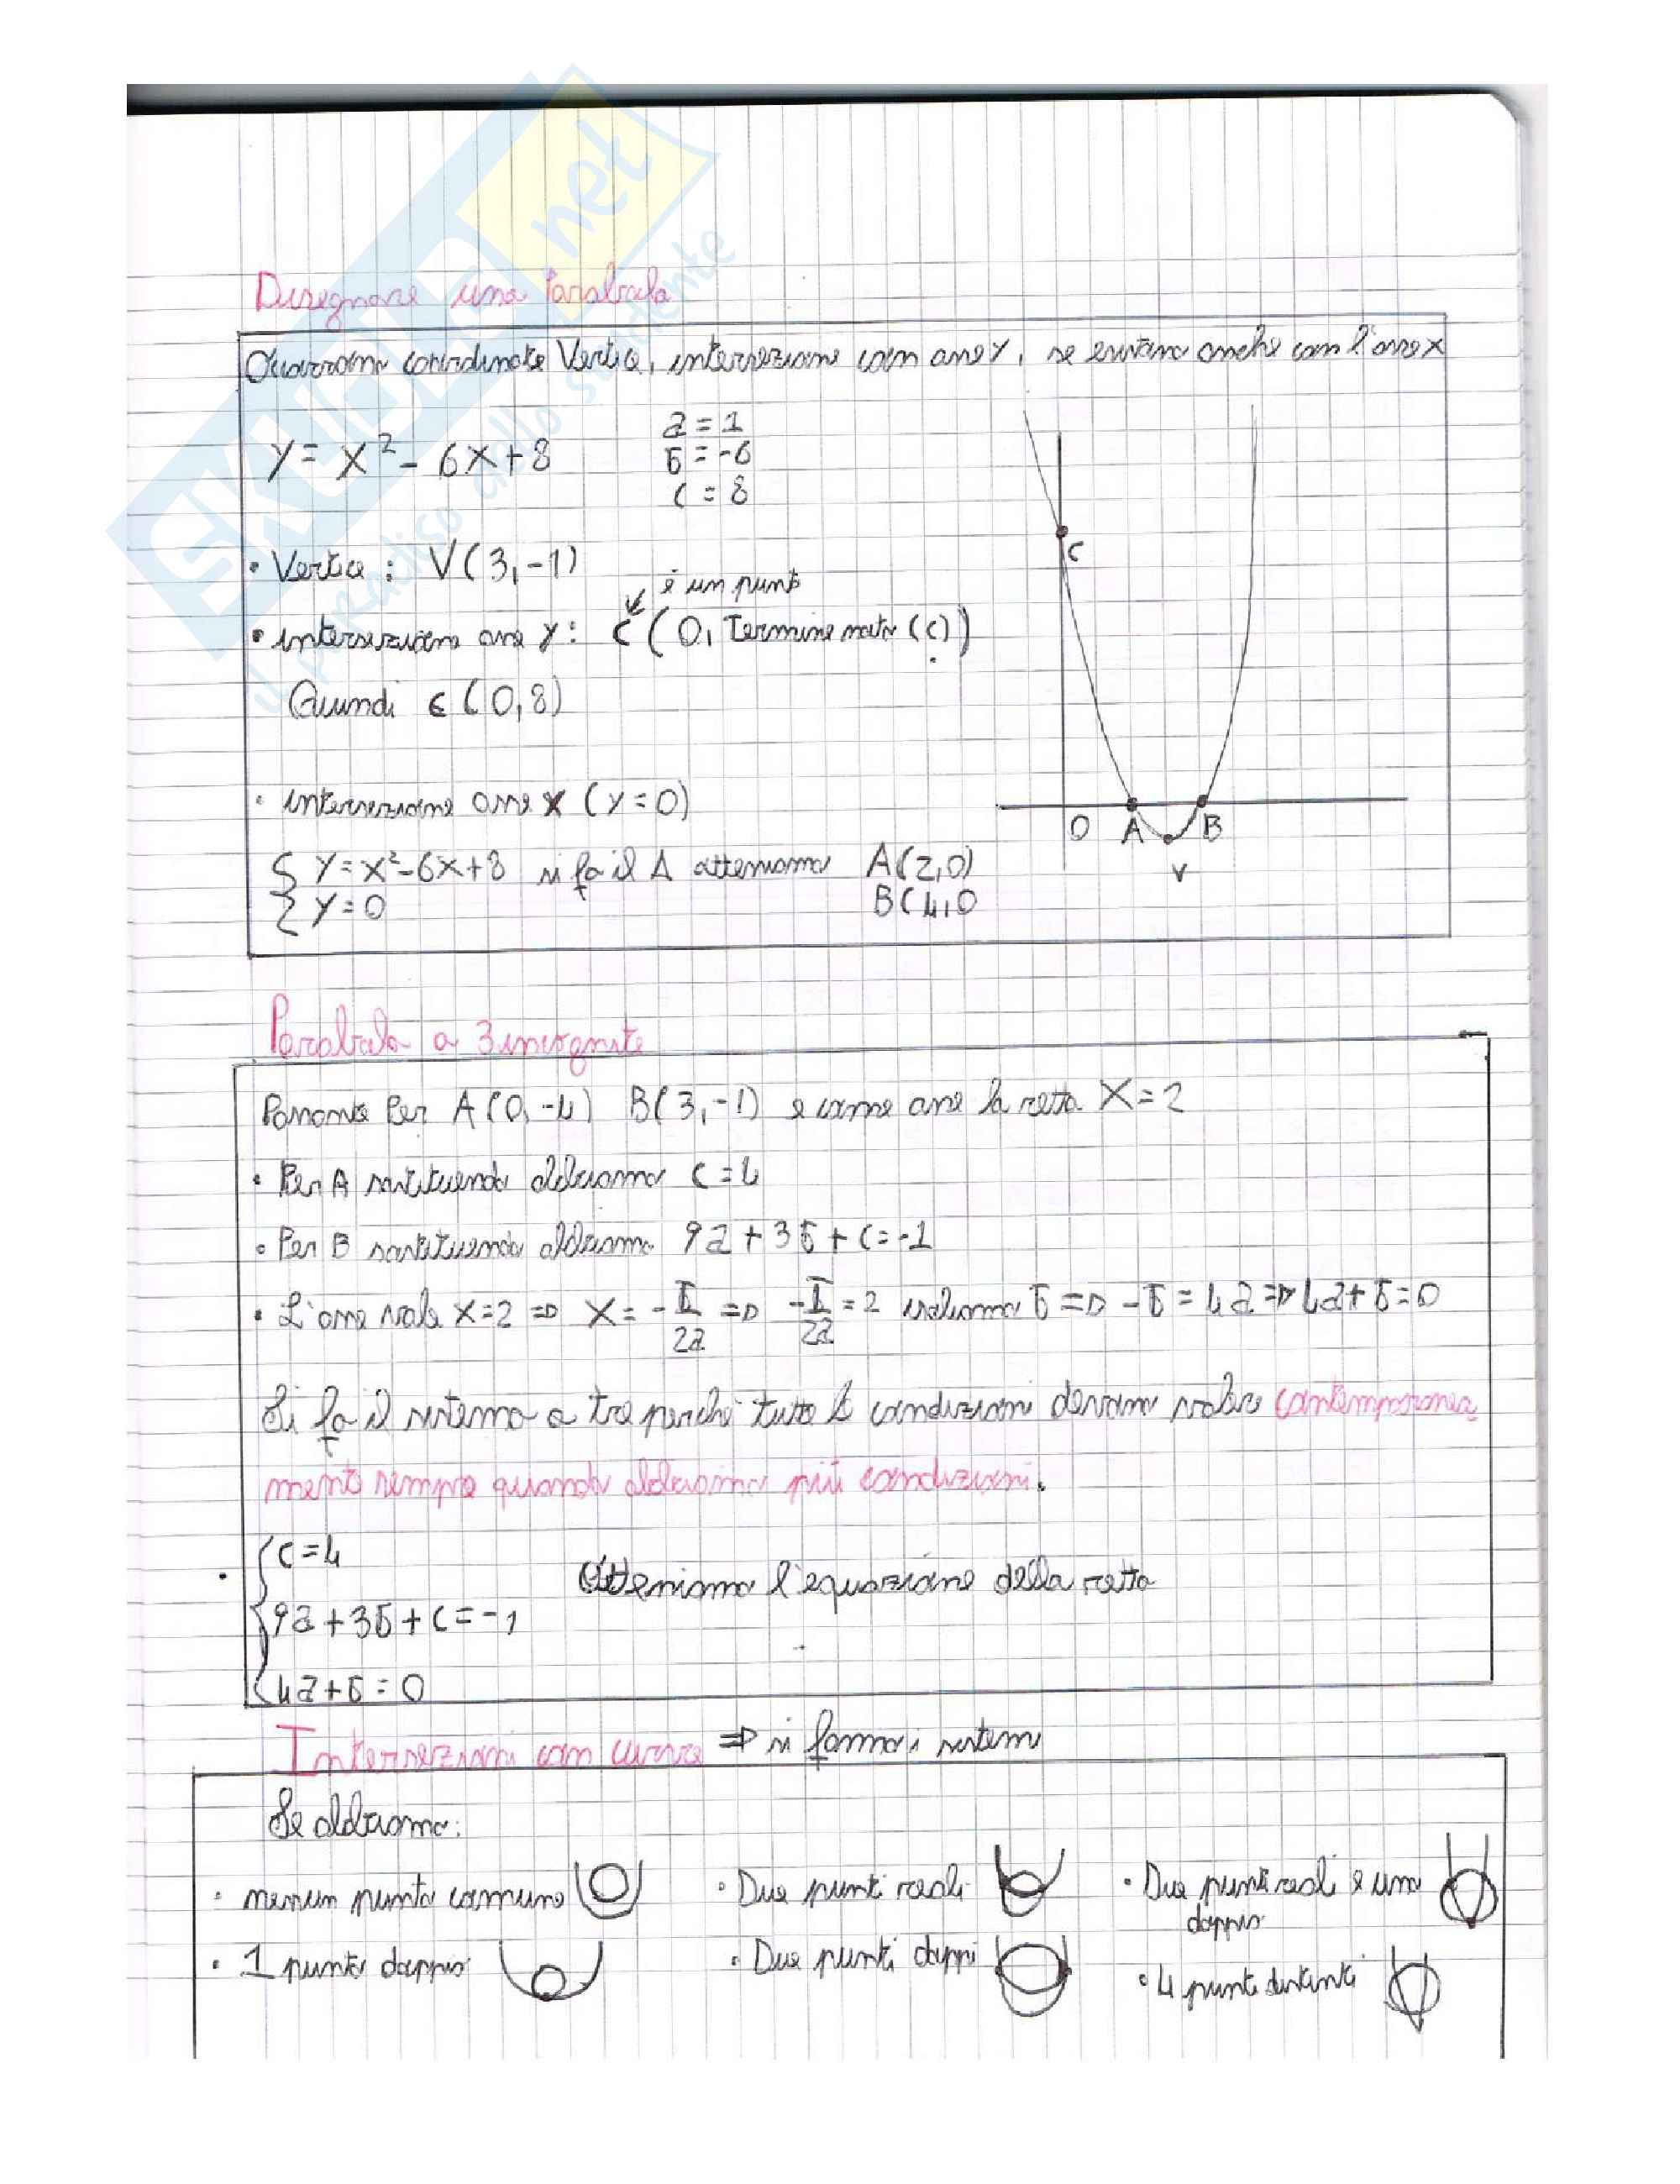 SKUOLA.net
il paradiso dello studente
Disegnare una Parabola
Occorrono coordinate Vertice, intersezione con asse y, se esistono anche con l'asse x
y = x² - 6x + 8
a = 1
b = -6
c = 8
• Vertice : V(3,-1)
è un punto
• intersezione asse y : C (0, Termine noto (c))
Quindi C (0,8)
• intersezione asse x (y=0)
{ y = x² - 6x + 8 si fa il Δ otteniamo A(2,0)
{ y = 0 B(4,0
C
O A B
V
Parabola a 3 incognite
Passante Per A(0,-4) B(3,-1) e come asse la retta X=2
• Per A sostituendo abbiamo C=4
• Per B sostituendo abbiamo 9a+3b+c=-1
• L'asse vale x=2 => X = -b/2a => -b/2a = 2 isoliamo b => -b = 4a => 4a+b=0
Si fa il sistema a tre perché tutte le condizioni devono valere contemporanea
mente sempre quando abbiamo più condizioni.
{ c=4
Otteniamo l'equazione della retta
{ 9a+3b+c=-1
{ 4a+b=0
Intersezioni con curve => si fanno i sistemi
Se abbiamo:
• nessun punto comune
• Due punti reali
• Due punti reali e uno
doppio
• 1 punto doppio
• Due punti doppi
• 4 punti distinti